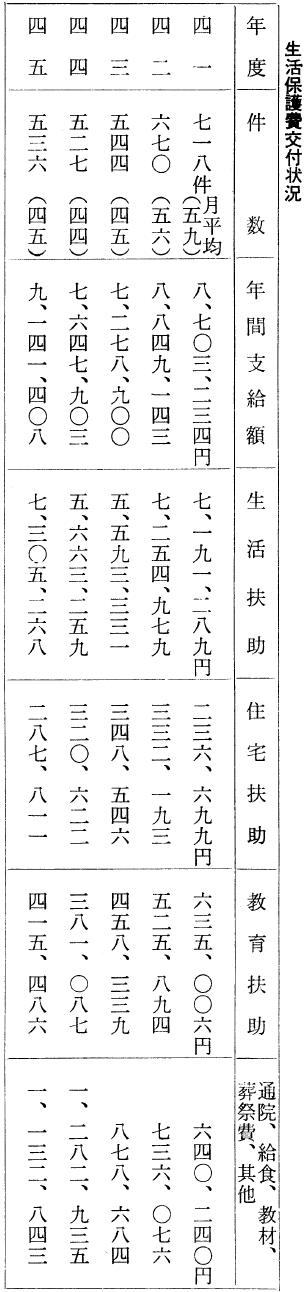 生活保護費交付状況
年度 件数 年間支給額 生活扶助 住宅扶助 教育扶助 通院、給食、教材、葬祭費、其他
四一 七一八件月平均(五九) 八、七〇三、二三四円 七、一九一、二八九円 二三六、六九九円 六三五、〇〇六円 六四〇、二四〇円
四二 六七〇(五六) 八、八四九、一四三 七、二五四、九七九 三三二、一九三 五二五、八九四 七三六、〇七六
四三 五四四(四五) 七、二七八、九〇〇 五、五九三、三三一 三四八、五四六 四五八、三三九 八七八、六八四
四四 五二七(四四) 七、六四七、九〇三 五、六六三、二五九 三二〇、六二二 三八一、〇八七 一、二八二、九三五
四五 五三六(四五) 九、一四一、四〇八 七、三〇五、二六八 二八七、八一一 四一五、四八六 一、一三二、八四三